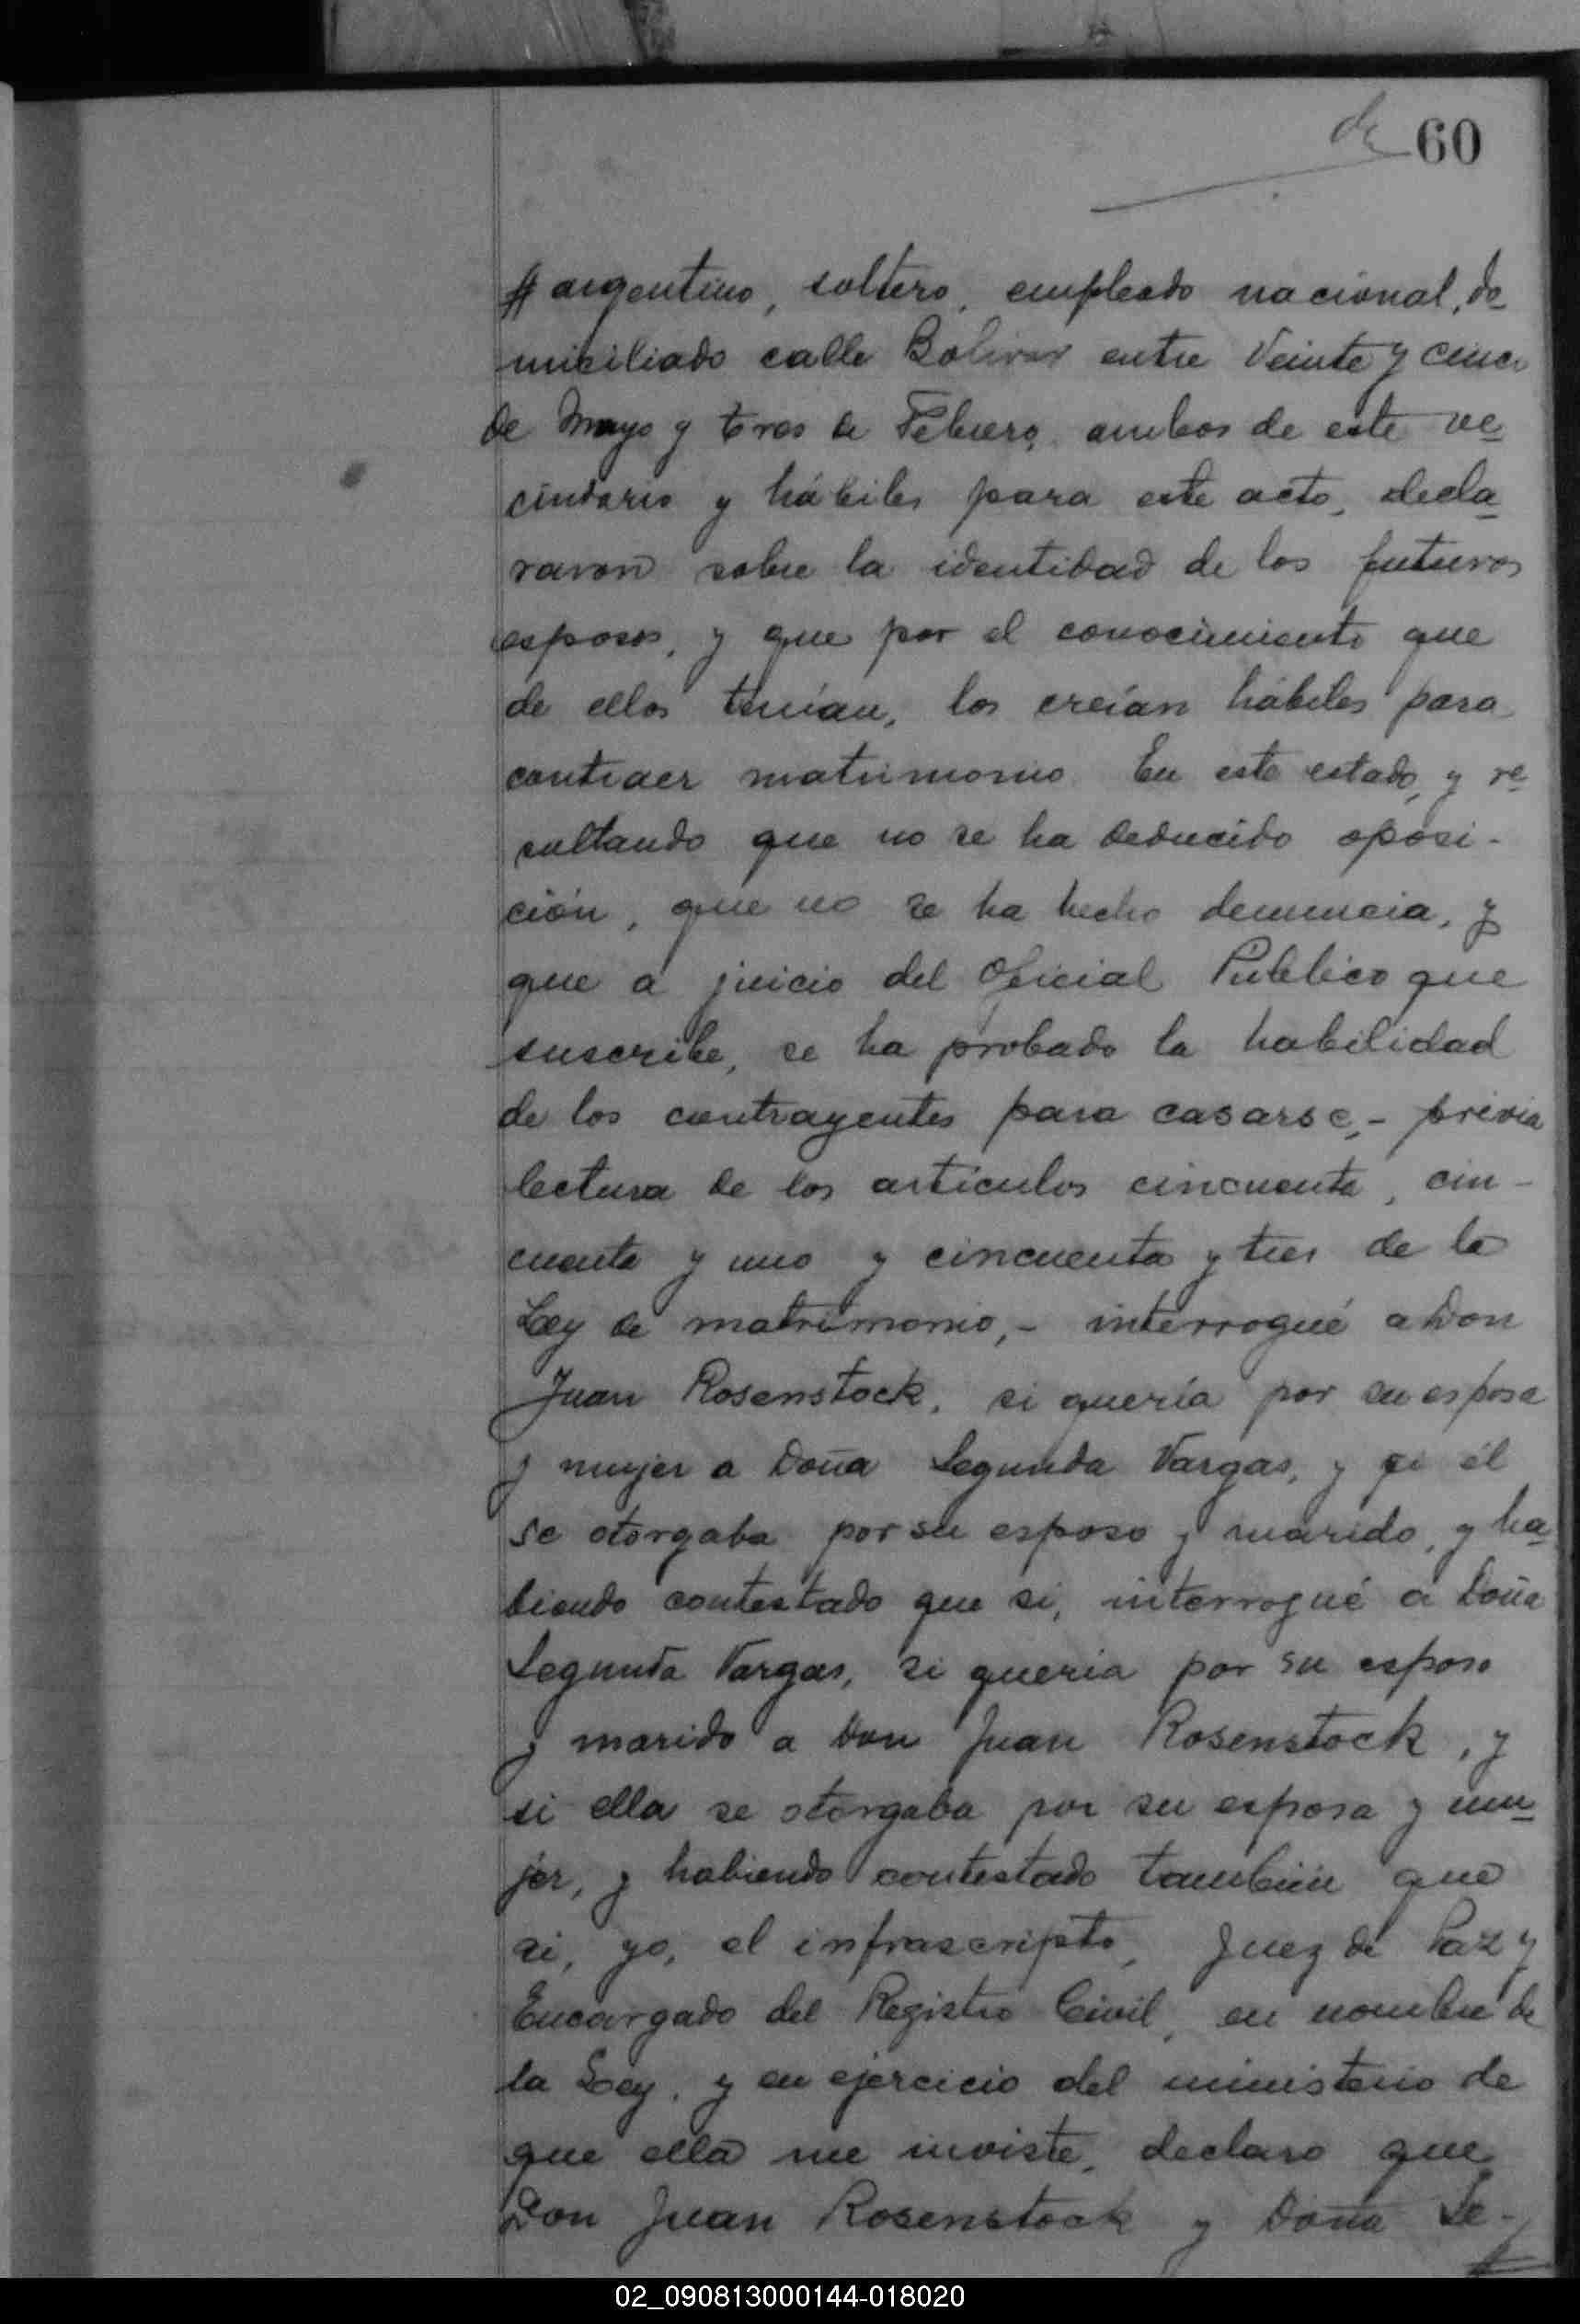 60
argentino, soltero, empleado nacional, do-
miciliado calle Bolivar entre Veinte y cinco
de Mayo y tres de Febrero, ambos de este ve-
cindario y hábiles para este acto, decla-
raron sobre la identidad de los futuros
esposos, y que por el conocimiento que
de ellos tenían, los creían hábiles para
contraer matrimonio En este estado, y re-
sultando que no se ha deducido oposi-
ción, que no se ha hecho denuncia, y
que a juicio del Oficial Público que
suscribe, se ha probado la habilidad
de los contrayentes para casarse,- previa
lectura de los artículos cincuenta, cin-
cuenta y uno y cincuenta y tres de la
Ley de matrimonio,- interrogué a Don
Juan Rosenstock, si quería por su esposa
y mujer a Doña Segunda Vargas, y si él
se otorgaba por su esposo y marido, y ha-
biendo contestado que si, interrogué a Doña
Segunda Vargas, si queria por su esposo
y marido a Don Juan Rosenstock, y
si ella se otorgaba por su esposa y mu-
jer, y habiendo contestado también que
si, yo, el infrascripto, Juez de Paz y
Encargado del Registro Civil, en nombre de
la Ley, y en ejercicio del ministerio de
que ella me inviste, declaro que
Don Juan Rosenstock y Doña Se-
02_090813000144-018020